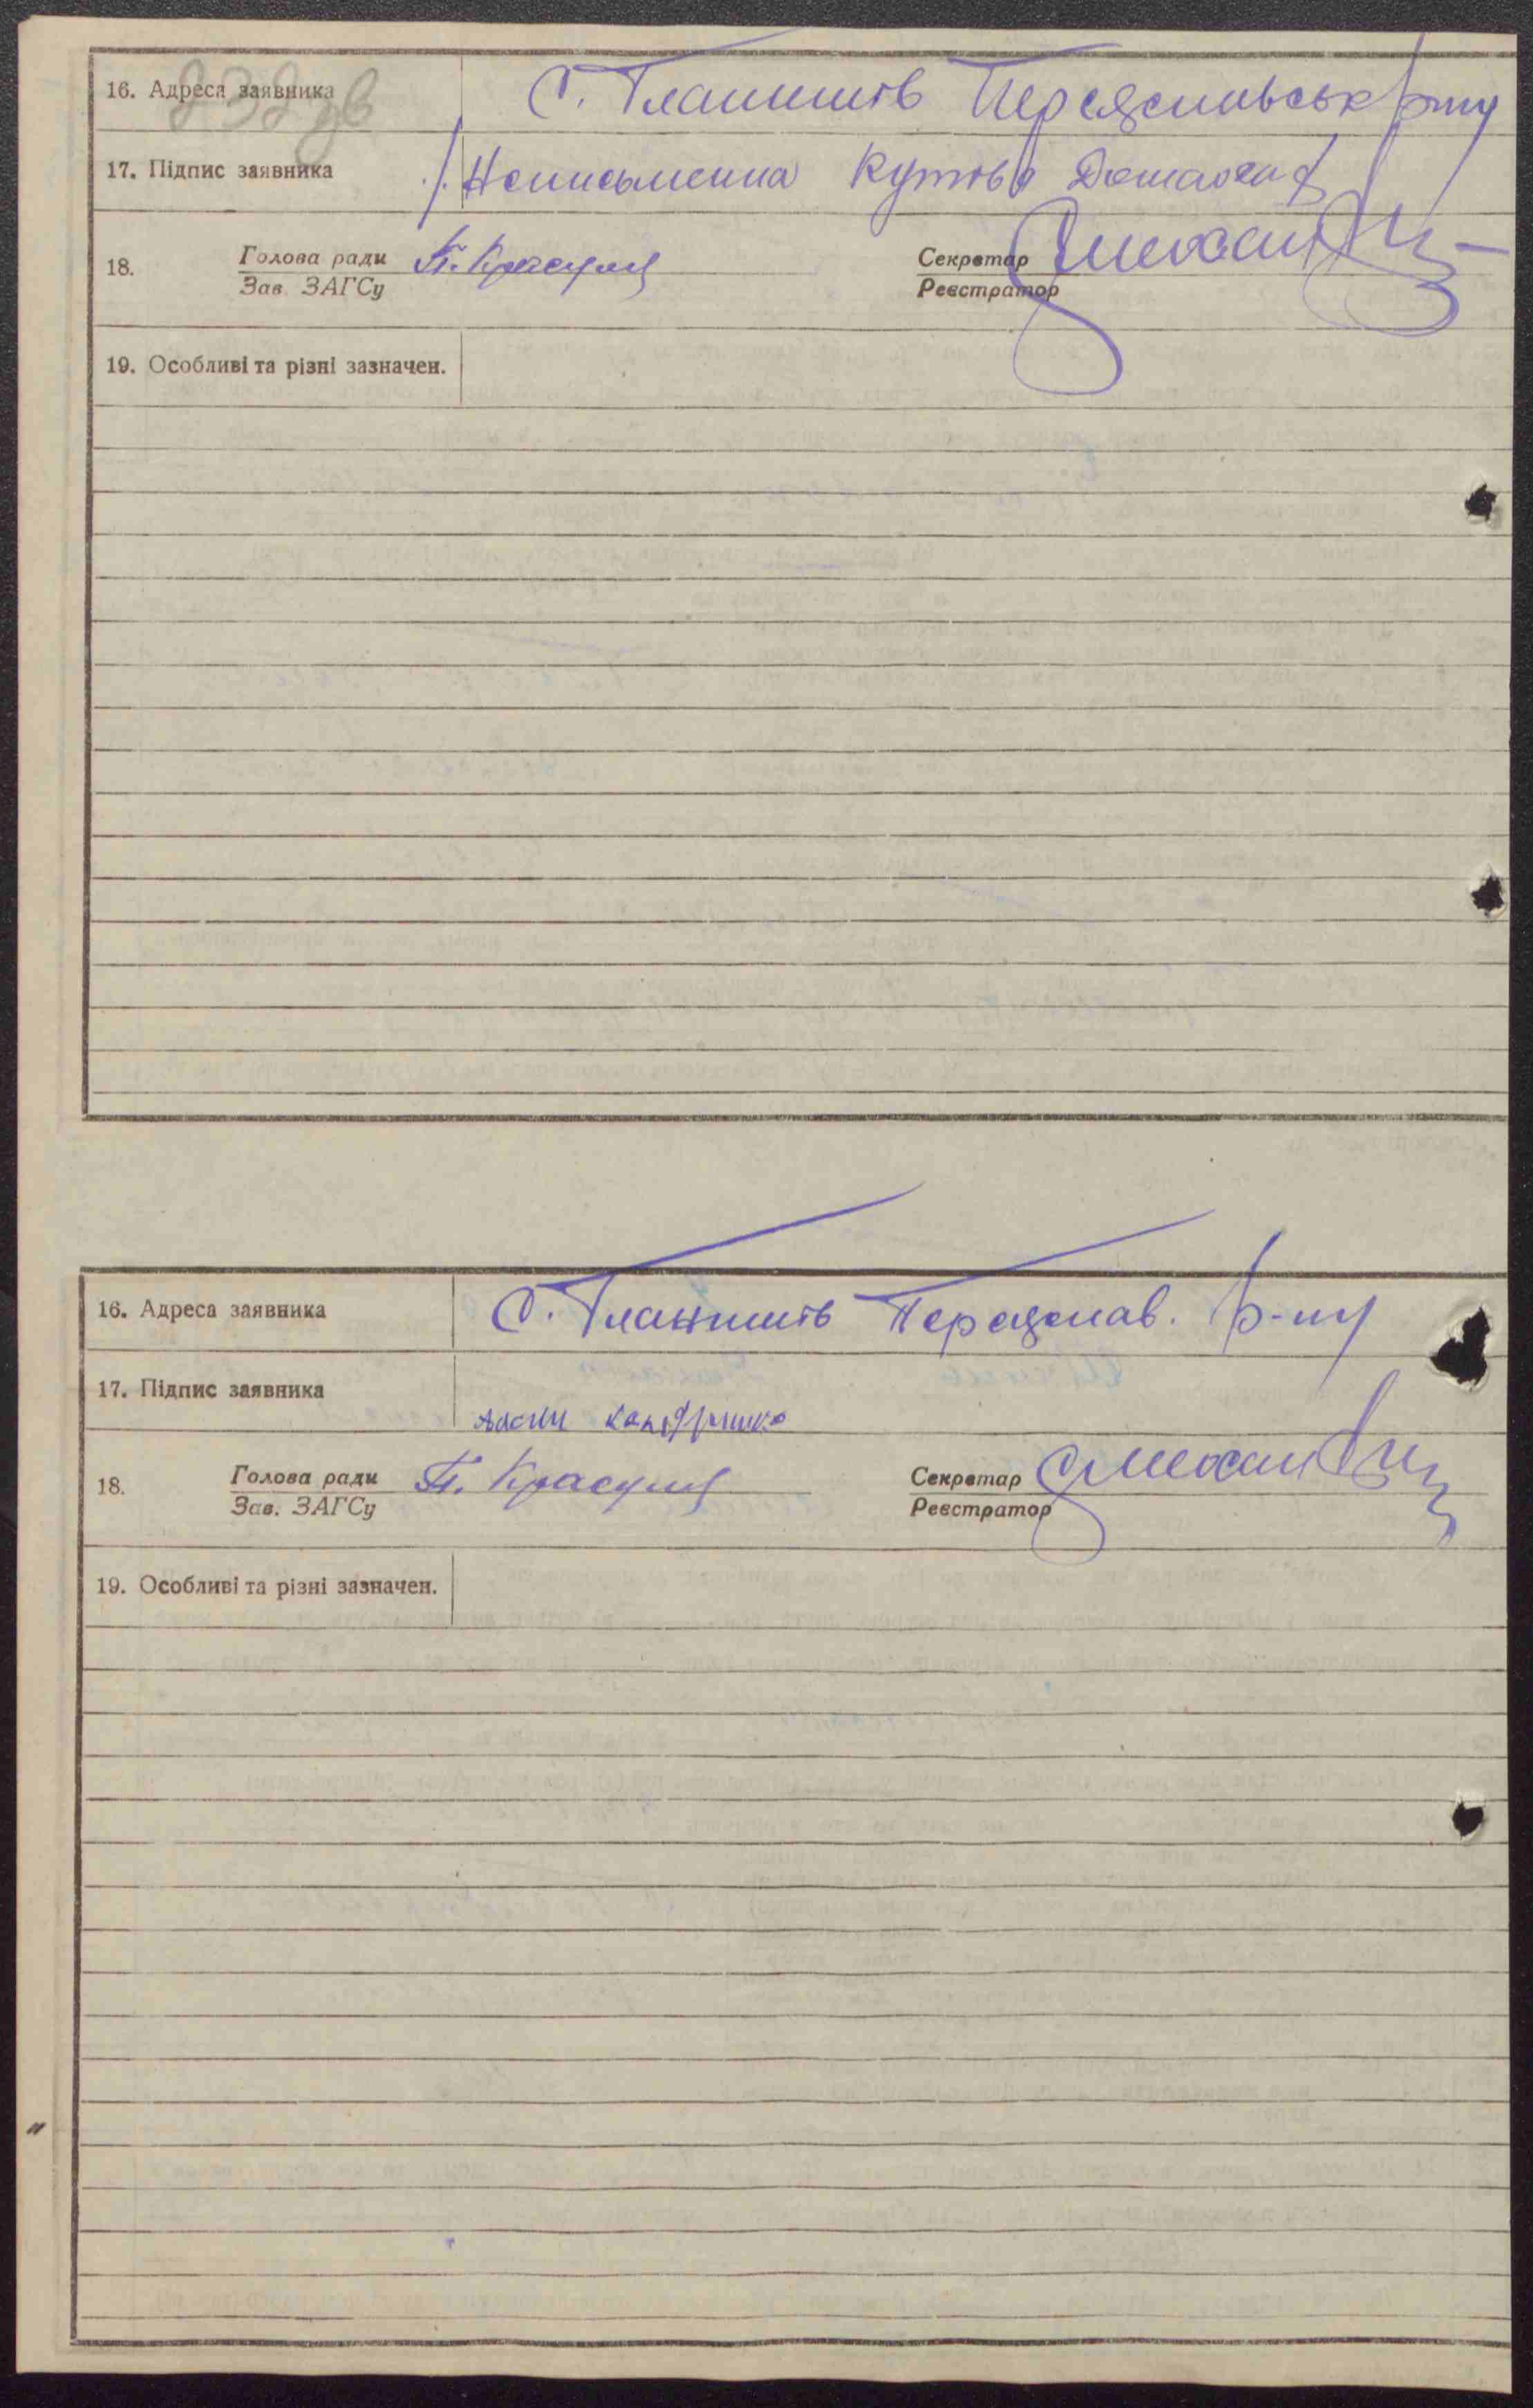 232 зв
16. Адреса заявника С. Гланишів Переяславськ р-ну
17. Підпис заявника Неписьменна Кутова
18. Голова ради П. Красуля Секретар
Зав. ЗАГСу Реєстратор
19. Особливі та різні зазначен.
16. Адреса заявника С. Гланишів Переяслав. р-ну
17. Підпис заявника
18. Голова ради П. Красуля Секретар
Зав. ЗАГСу Реєстратор
19. Особливі та різні зазначен.